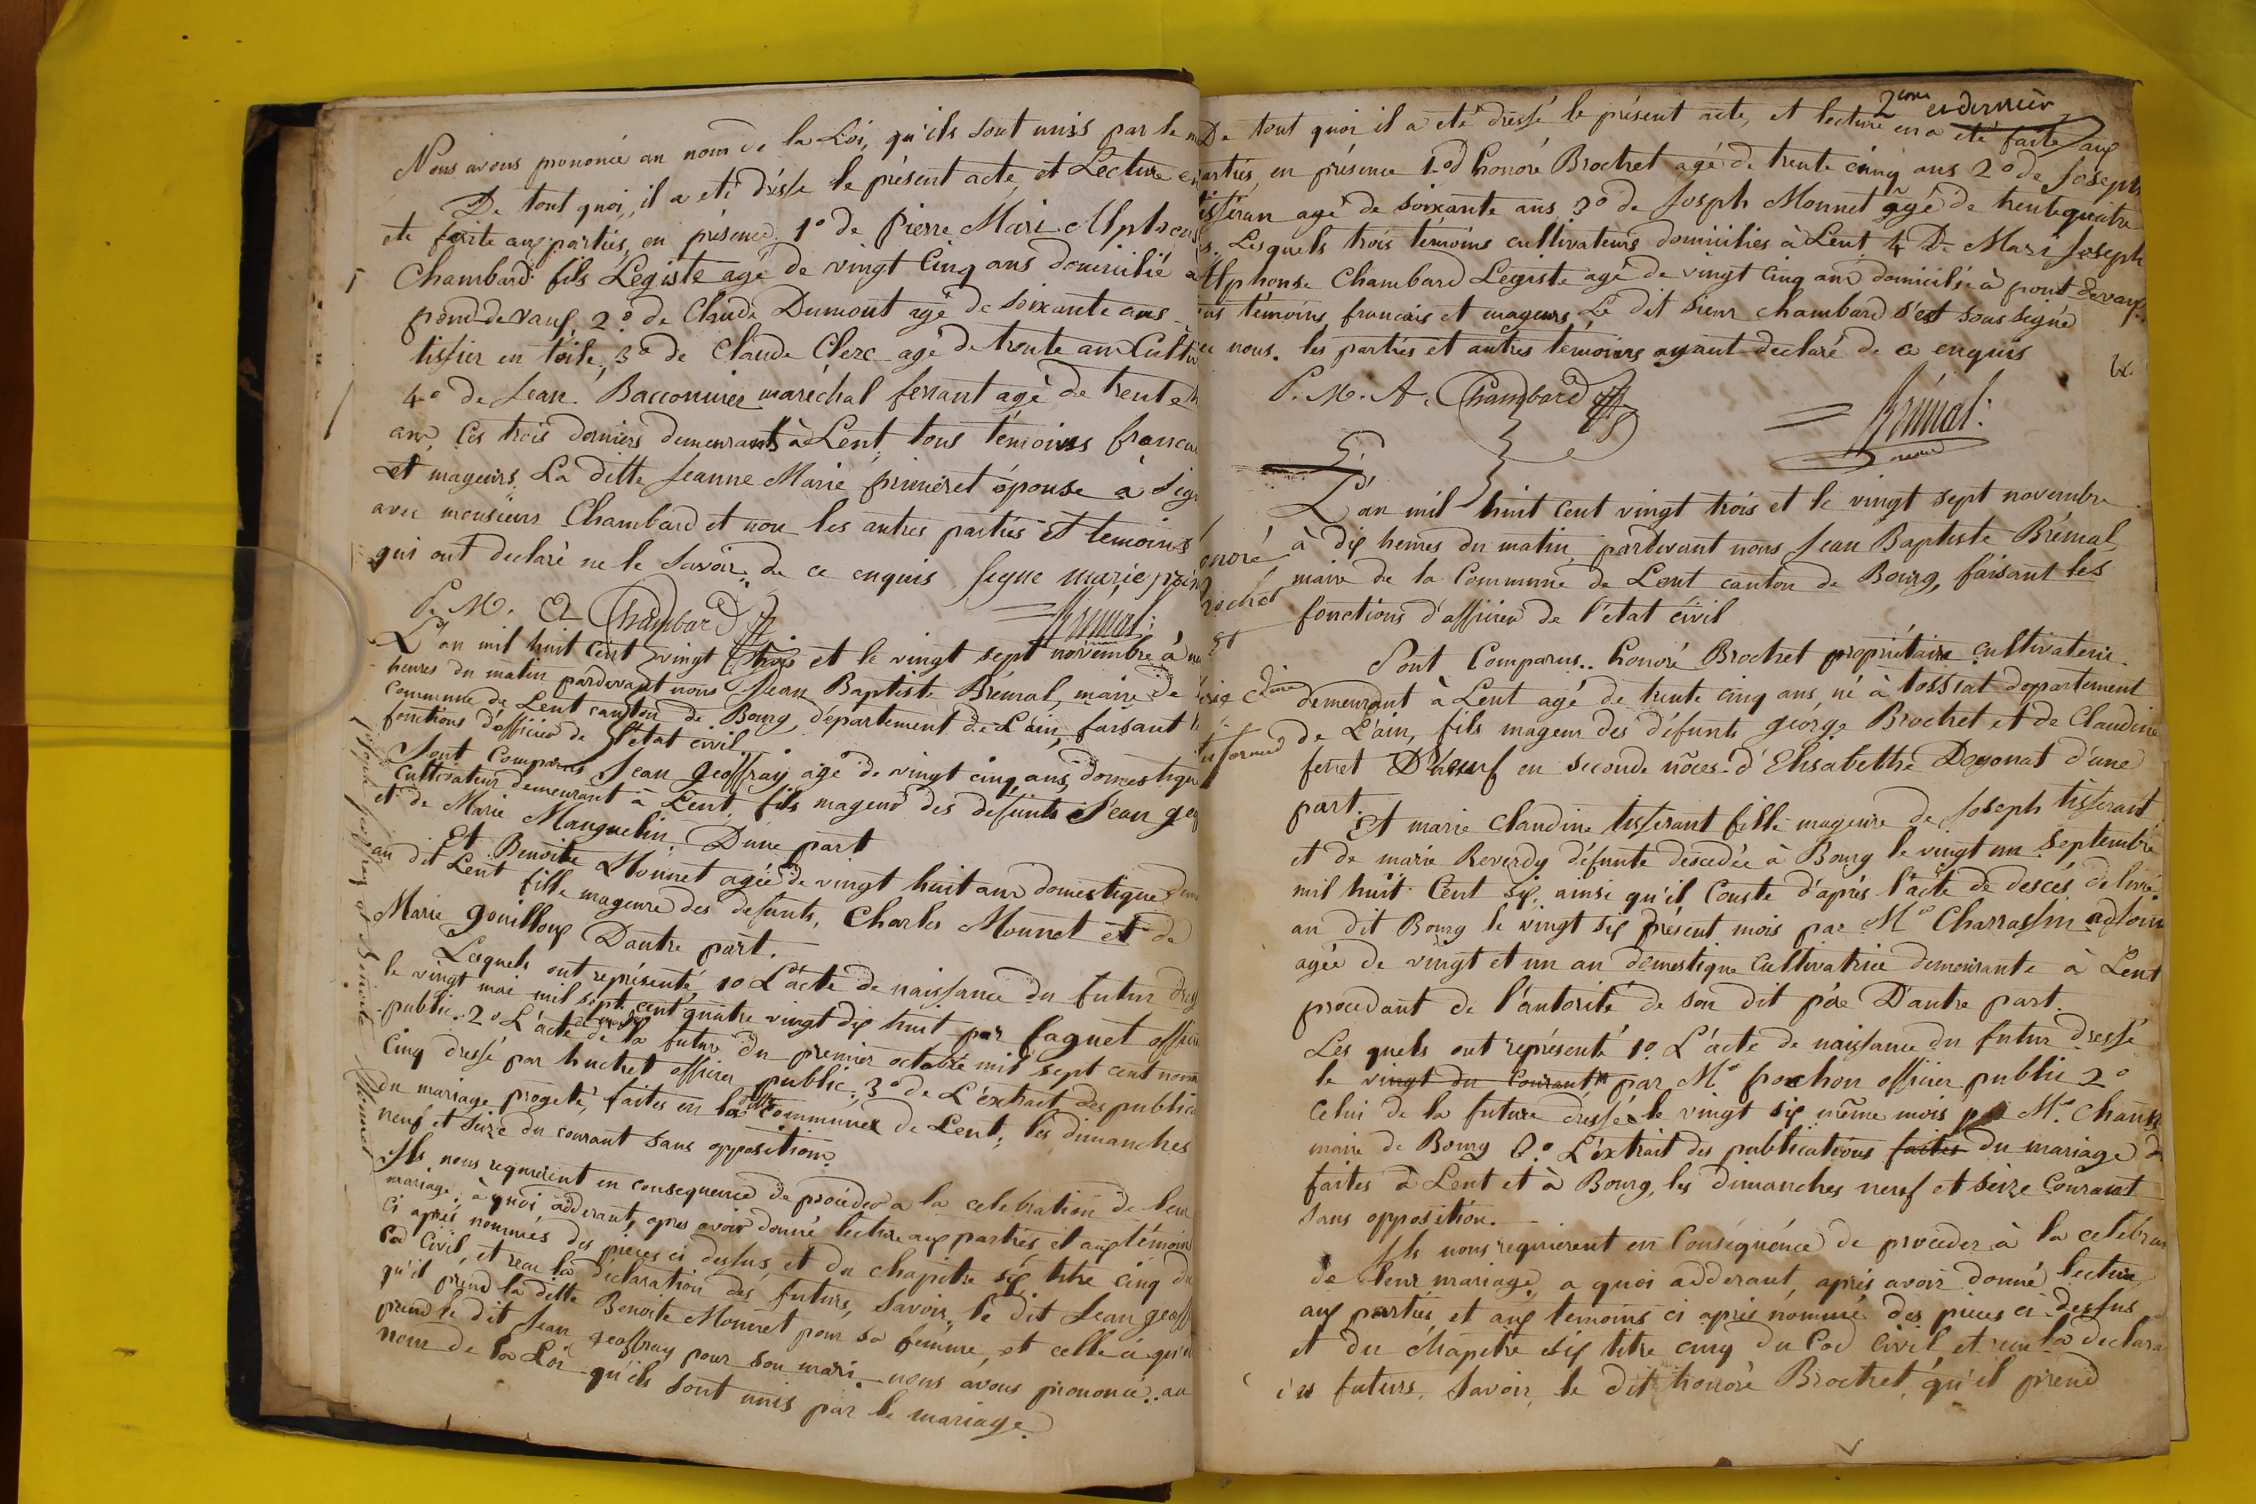 Nous avons prononcé au nom de la Loi, qu'ils sont unis par le m
De tout quoi, il a eté drésse le présent acte, et Lecture en
eté faite aux parties, en présence 1º de Pierre Mari Alphons
Chambard fils Légiste agé de vingt Cinq ans domicilié a
pond-de vaux, 2º de Claude Dumont agé de soixante ans
tissier en toile, 3º de Claude Clerc agé de trente ans Cultiv
4º de Jean Bacconnier maréchal ferrant agé de trente h
ans Ces trois derniers demeurants à Lent, tous témoins francai
et mageurs. La ditte Jeanne Marie épouse à sign
avec monsieur Chambard et nou les autres parties et temoins
qui ont declaré ne le savoir de ce enquis
P. M. A Chambard Brémal
L'an mil huit Cent vingt trois et le vingt sept novembre à
heures du matin pardevant nous Jean Baptiste Brémal, maire de
Commune de Lent canton de Bourg, département de L'ain, faisant l
fonctions d'officier de l'état civil
Sont Comparus Jean geoffray agé de vingt cinq ans, domestique
Cultivateur demeurant à Lent, fils mageur des defunts Jean geof
et de Marie Manguelin. D'une part
Et Benoite Monnet agée de vingt huit ans domestique dem
au dit Lent fille mageure des defunts, Charles Monnet et de
Marie gouilloux D'autre part.
Lesquels ont représenté 1º L'acte de naissance du futur dress
le vingt mai mil sept cent quatre vingt dix huit par faguet officie
public. 2º L'acte de la future du premier octobre mil sept cent nonan
Cinq dressé par huchet officier public. 3º de L'extrait des publica
du mariage progeté, faites en la ditte Commune de Lent, les dimanches
neuf et seize du courant sans opposition.
Ils nous requierent en consequence de procéder a la celebration de leur
mariage, à quoi adderant, apres avoir donné lecture aux parties, et aux témoins
Ci aprés nommés des pieces ci dessus, et du chapitre six titre cinq du
Cod Civil, et recu la déclaration des futurs, savoir, le dit Jean geoff
qu'il prend la ditte Benoite Monnet pour sa femme, et celle ci qu'el
prend le dit Jean geoffray pour son mari nous avons prononcé au
nom de la Loi qu'ils sont unis par le mariage.
joseph geoffray et Benoite Monnet
2eme et dernier
De tout quoi il a eté dréssé le présent acte, et lecture en a eté faite aux
parties, en présence 1º d honoré Brochet agé de trente cinq ans 2º de Joseph
tisséran agé de soixante ans 3º de Joseph Monnet agé de trente quatre
s. Lesquels trois témoins cultivateurs domiciliés à Lent 4º De Mari Joseph
Alphonse Chambard Legiste agé de vingt Cinq ans domicilié à pont devaux
tous témoins francais et mageurs Le dit sieur Chambard s'est sous signé
ec nous. les parties et autres temoins ayant declaré de ce enquis
P. M. A. Chambard Brémal
L'an mil huit Cent vingt trois et le vingt sept novembre
à dix heures du matin pardevant nous Jean Baptiste Brémal,
maire de la Commune de Lent canton de Bourg, faisant les
fonctions d'officier de l'état civil
Sont Comparus.. honoré Brochet propriétaire cultivateur
demeurant à Lent agé de trente cinq ans né à tossiat departement
de L'ain, fils mageur des défunts géorge Brochet et de Claudine
ferret D'veuf en seconde nôces d'Elisabethe Doyonat d'une
part.
Et marie Claudine tisserant fille mageure de Joseph tisserant
et de marie Reverdy défunte décédée à Bourg le vingt un septembre
mil huit Cent six, ainsi qu'il Conste d'aprés l'acte de descés delivré
au dit Bourg le vingt six présent mois par Me Charrassin adjoin
agée de vingt et un an domestique Cultivatrice demeurante à Lent
procedant de l'autorité de son dit père D'autre part.
Les quels ont représenté 1º L'acte de naissance du futur dressé
le vingt du Courant par Me fochon officier public 2º
Celui de la future dressé le vingt six même mois par Me
maire de Bourg 3º L'extrait des publications faites du mariage
faites à Lent et à Bourg, les dimanches neuf et seize Courant
sans opposition.
Ils nous requierent en Conséquence de proceder à la celebra
de leur mariage, a quoi adderant, aprés avoir donné lecture
aux parties, et aux temoins ci aprés nommé des pieces ci dessus
et du chapitre six titre cinq du Cod Civil et recu la declara
des futurs, savoir, le dit honoré Brochet, qu'il prend